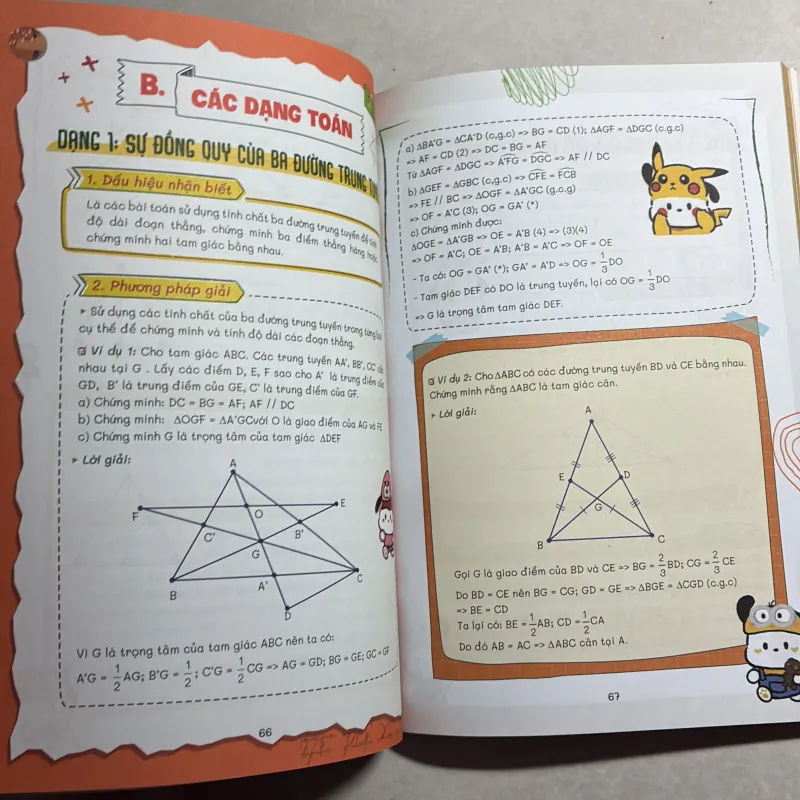 B.
CÁC DẠNG TOÁN
DẠNG 1: SỰ ĐỒNG QUY CỦA BA ĐƯỜNG TRUNG
1. Dấu hiệu nhận biết
Là các bài toán sử dụng tính chất ba đường trung tuyến để tính
độ dài đoạn thẳng, chứng minh ba điểm thẳng hàng hoặc
chứng minh hai tam giác bằng nhau.
2. Phương pháp giải
▸ Sử dụng các tính chất của ba đường trung tuyến trong từng bài
cụ thể để chứng minh và tính độ dài các đoạn thẳng.
Ví dụ 1: Cho tam giác ABC. Các trung tuyến AA', BB', CC' cắt
nhau tại G . Lấy các điểm D, E, F sao cho A' là trung điểm của
GD, B' là trung điểm của GE, C' là trung điểm của GF.
a) Chứng minh: DC = BG = AF; AF // DC
b) Chứng minh: ΔOGF = ΔA'GCvới O là giao điểm của AG và FE
c) Chứng minh G là trọng tâm của tam giác ΔDEF
▸ Lời giải:
A
F
O
E
C'
B'
G
B
A'
C
D
Vì G là trọng tâm của tam giác ABC nên ta có:
A'G = 1/2 AG; B'G = 1/2 ; C'G = 1/2 CG => AG = GD; BG = GE; GC = GF
66
a) ΔBA'G = ΔCA'D (c,g,c) => BG = CD (1); ΔAGF = ΔDGC (c.g.c)
=> AF = CD (2) => DC = BG = AF
Từ ΔAGF = ΔDGC => AFG = DGC => AF // DC
b) ΔGEF = ΔGBC (c,g,c) => CFE = FCB
=> FE // BC => ΔOGF = ΔA'GC (g.c.g)
=> OF = A'C (3); OG = GA' (*)
c) Chứng minh được:
ΔOGE = ΔA'GB => OE = A'B (4) => (3)(4)
=> OF = A'C; OE = A'B; A'B = A'C => OF = OE
- Ta có: OG = GA' (*); GA' = A'D => OG = 1/3 DO
- Tam giác DEF có DO là trung tuyến, lại có OG = 1/3 DO
=> G là trọng tâm tam giác DEF.
Ví dụ 2: Cho ΔABC có các đường trung tuyến BD và CE bằng nhau.
Chứng minh rằng ΔABC là tam giác cân.
▸ Lời giải:
A
E
D
G
B
C
Gọi G là giao điểm của BD và CE => BG = 2/3 BD; CG = 2/3 CE
Do BD = CE nên BG = CG; GD = GE => ΔBGE = ΔCGD (c.g.c)
=> BE = CD
Ta lại có: BE = 1/2 AB; CD = 1/2 CA
Do đó AB = AC => ΔABC cân tại A.
67